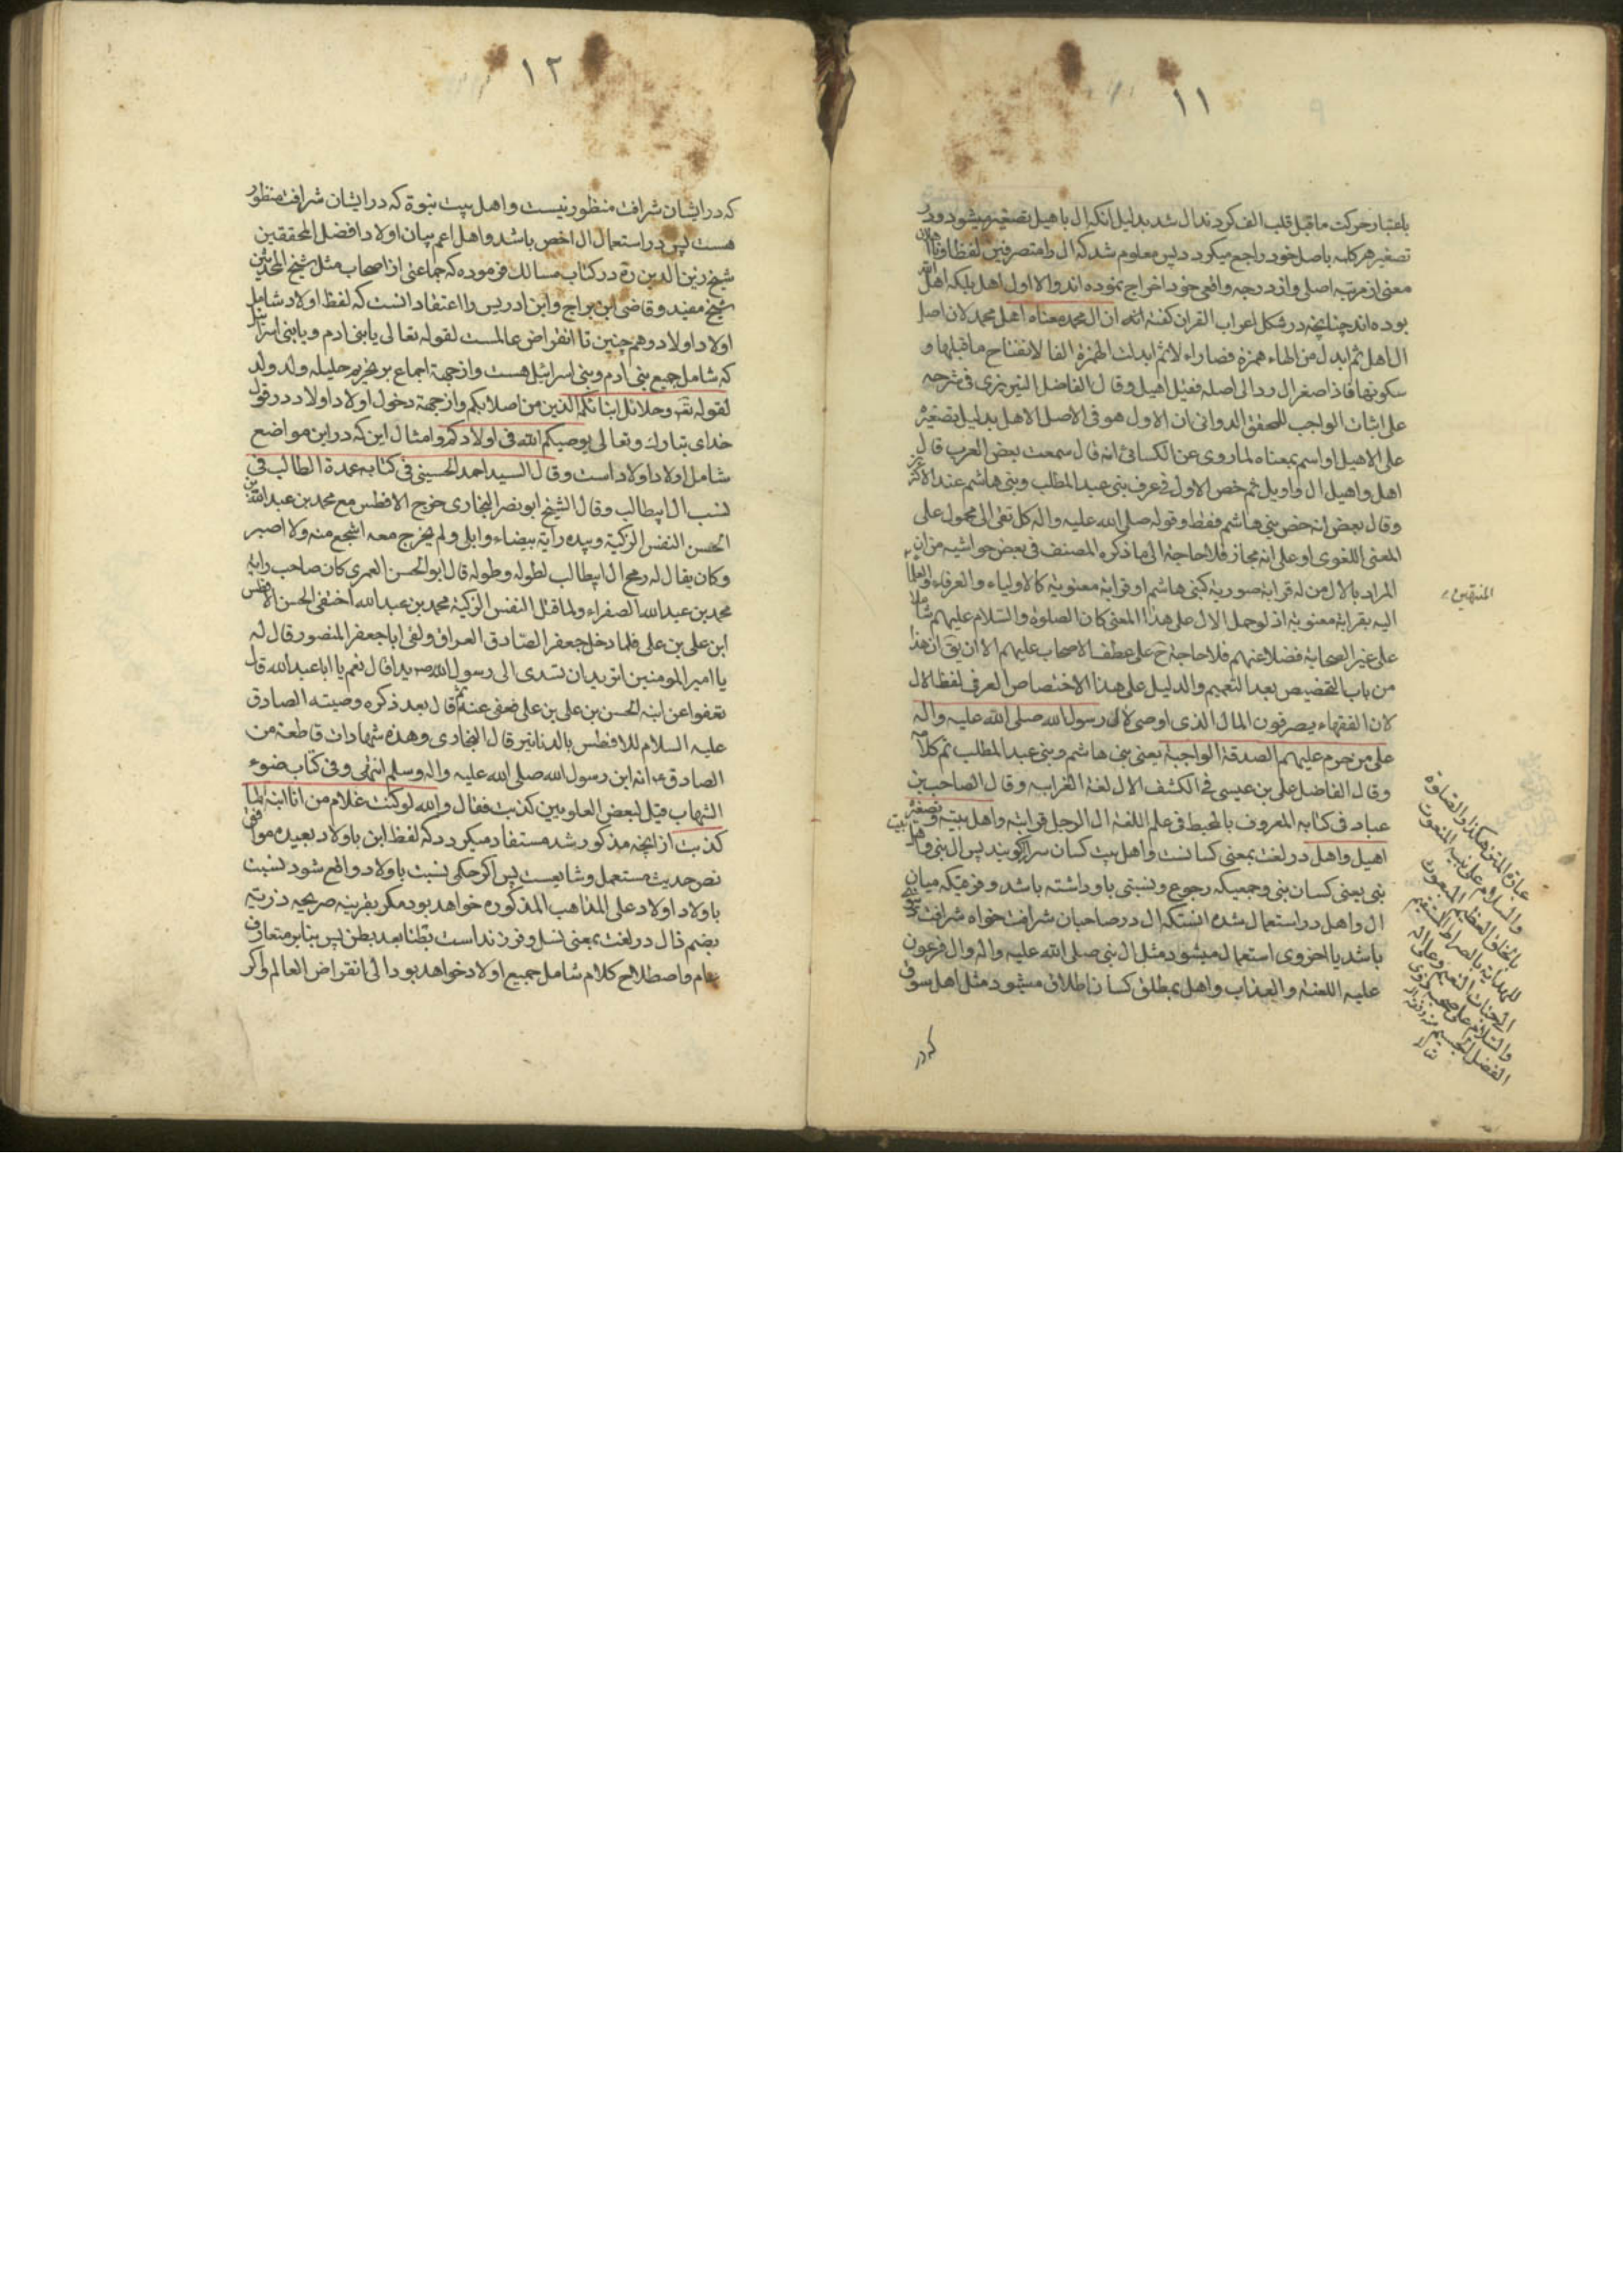 ١١
باعتبار حرکت ماقبل قلب الف کردند ال شد بدلیل انکه ال باهیل تصغیر میشود ودر
تصغیر هر کلمه باصل خود راجع میکردد پس معلوم شد که ال را متصرفین لفظا و تا
معنی از مرتبه اصلی و از درجه واقعی خود اخراج نموده اند والا اول اهل بلکه اهل
بوده اند چنانچه در مشکل اعراب القران کفته اند ان ال محمد معناه اهل محمد لان اصل
ال اهل ثم ابدل من الهاء همزة فصار اءل ثم ابدلت الهمزة الفا لانفتاح ماقبلها و
سکونها فاذا صغر ال رد الی اصله فقیل اهیل وقال الفاضل التبریزی فی شرحه
علی اثبات الواجب للمحقق الدوانی ان الاول هو فی الاصل الاهل بدلیل تصغیره
علی الاهیل او اسم بمعناه لما روی عن الکسائی انه قال سمعت بعض العرب قال
اهل واهیل ال واویل ثم خص الاول فی عرف بنی عبد المطلب وبنی هاشم عند الاکثر
وقال بعض انه خص بنی هاشم فقط وقوله صلی الله علیه واله کل تقی الی محمول علی
المعنی اللغوی او علی انه مجاز فلا حاجة الی ما ذکره المصنف فی بعض حواشیه من ان
المراد بالال من له قرابة صوریة کبنی هاشم او قرابة معنویة کالاولیاء والعرفاء والعلما
الیه بقرابة معنویة اذ لو حمل الال علی هذا المعنی کان الصلوة والسلام علیهم شاملا
علی غیر الصحابة فضلا عنهم فلا حاجة ح علی عطف الاصحاب علیهم الا ان یق ان هذا
من باب التخصیص بعد التعمیم والدلیل علی هذا الاختصاص العرف لفظ الال
لان الفقهاء یصرفون المال الذی اوصی لال رسول الله صلی الله علیه واله
علی من حرم علیهم الصدقة الواجبة یعنی بنی هاشم وبنی عبد المطلب تم کلامه
وقال الفاضل علی بن عیسی فی الکشف الال لغة القرابه وقال الصاحب بن
عباد فی کتابه المعروف بالمحیط فی علم اللغة ال الرجل قرابته واهل بیته وتصغیره
اهیل واهل در لغت بمعنی کسانست واهل بیت کسان سرا کویند پس ال نبی واهل بیت
نبی یعنی کسان نبی وجمعیکه رجوع ونسبتی باو داشته باشد وفرقیکه میان
ال واهل در استعمال شده انستکه ال در صاحبان شرافت خواه شرافت دنیوی
باشد یا اخروی استعمال میشود مثل ال نبی صلی الله علیه واله وال فرعون
علیه اللعنة والعذاب واهل بمطلق کسان اطلاق میشود مثل اهل سوق
که در
المنتهین
عبارة المتن هکذا والصلوة
والسلام علی نبیه المنعوت
بالخلق العظیم المبعوث
للهدایة بالصراط المستقیم
الی جنات النعیم وعلی اله
والسلام علی صحبه ذوی
الفضل الجسیم
١٢
که در ایشان شرافت منظور نیست واهل بیت نبوة که در ایشان شرافت منظور
هست پس در استعمال ال اخص باشد واهل اعم بیان اولاد افضل المحققین
شیخ زین الدین ره در کتاب مسالک فرموده که جماعتی از اصحاب مثل شیخ المحدثین
شیخ مفید وقاضی ابن براج وابن ادریس را اعتقاد انست که لفظ اولاد شامل
اولاد اولاد وهم چنین تا انقراض عالمست لقوله تعالی یا بنی ادم ویا بنی اسرائیل
که شامل جمیع بنی ادم وبنی اسرائیل هست واز جهة اجماع بر تحریم حلیله ولد ولد
لقوله تعه وحلائل ابنائکم الذین من اصلابکم واز جهة دخول اولاد اولاد در قول
خدای تبارک وتعالی یوصیکم الله فی اولادکم وامثال این که در این مواضع
شامل اولاد اولاد است وقال السید احمد الحسینی فی کتابه عمدة الطالب فی
نسب ال ابیطالب وقال الشیخ ابو نصر البخاری خرج الافطس مع محمد بن عبد الله بن
الحسن النفس الزکیة وبیده رایة بیضاء وابلی ولم یخرج معه اشجع منه ولا اصبر
وکان یقال له رمح ال ابیطالب لطوله وطوله قال ابو الحسن العمری کان صاحب رایة
محمد بن عبد الله الصفراء ولما قتل النفس الزکیة محمد بن عبد الله اختفی الحسن الافطس
ابن علی بن علی فلما دخل جعفر الصادق العراق ولقی ابا جعفر المنصور قال له
یا امیر المومنین اترید ان تسدی الی رسول الله ص یدا قال نعم یا ابا عبد الله قال
تعفو عن ابنه الحسن بن علی بن علی فعفی عنه ثم قال بعد ذکره وصیته الصادق
علیه السلام للافطس بالدنانیر قال البخاری وهذه شهادات قاطعة من
الصادق ع انه ابن رسول الله صلی الله علیه واله وسلم انتهی وفی کتاب ضوء
الشهاب قیل لبعض العلویین کذبت فقال والله لو کنت غلام من انا ابنه لما
کذبت از انچه مذکور شد مستفاد میکردد که لفظ ابن باولاد بعیده موافق
نص حدیث مستعمل وشایعست پس اکر حکمی نسبت باولاد واقع شود نسبت
باولاد اولاد علی المذاهب المذکوره خواهد بود مکر بقرینه صریحه ذریه
بضم ذال در لغت بمعنی نسل وفرزند است بطنا بعد بطن پس بنابر متعارف
عام واصطلاح کلام شامل جمیع اولاد خواهد بود الی انقراض العالم واکر